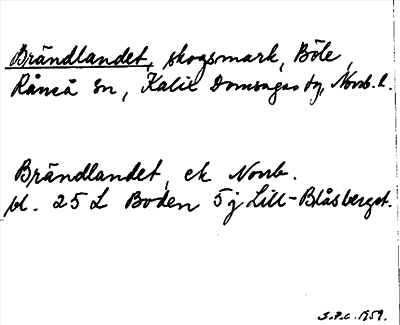 Brändlandet, skogsmark, Böle,
Råneå sn, Kalix Domsagas tg, Norrb. l.
Brändlandet, ek Norrb.
bl. 25 L Boden 5 j Lill-Blåsberget.
S.P.C. 1959.